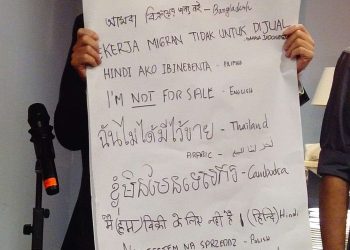 আমরা বিক্রয়ের জন্য নই - Bangladesh
KERJA MIGRAN TIDAK UNTUK DIJUAL
HINDI AKO IBINEBENTA - FILIPINO
I'M NOT FOR SALE - ENGLISH
ฉันไม่ได้มีไว้ขาย - Thailand
ARABIC -
ខ្ញុំមិនមែន - Cambodia
मैं (हम) बिकी के लिए नहीं है। (हिन्दि) Hindi
JESTEM NA SPRZEDAŻ - POLISH